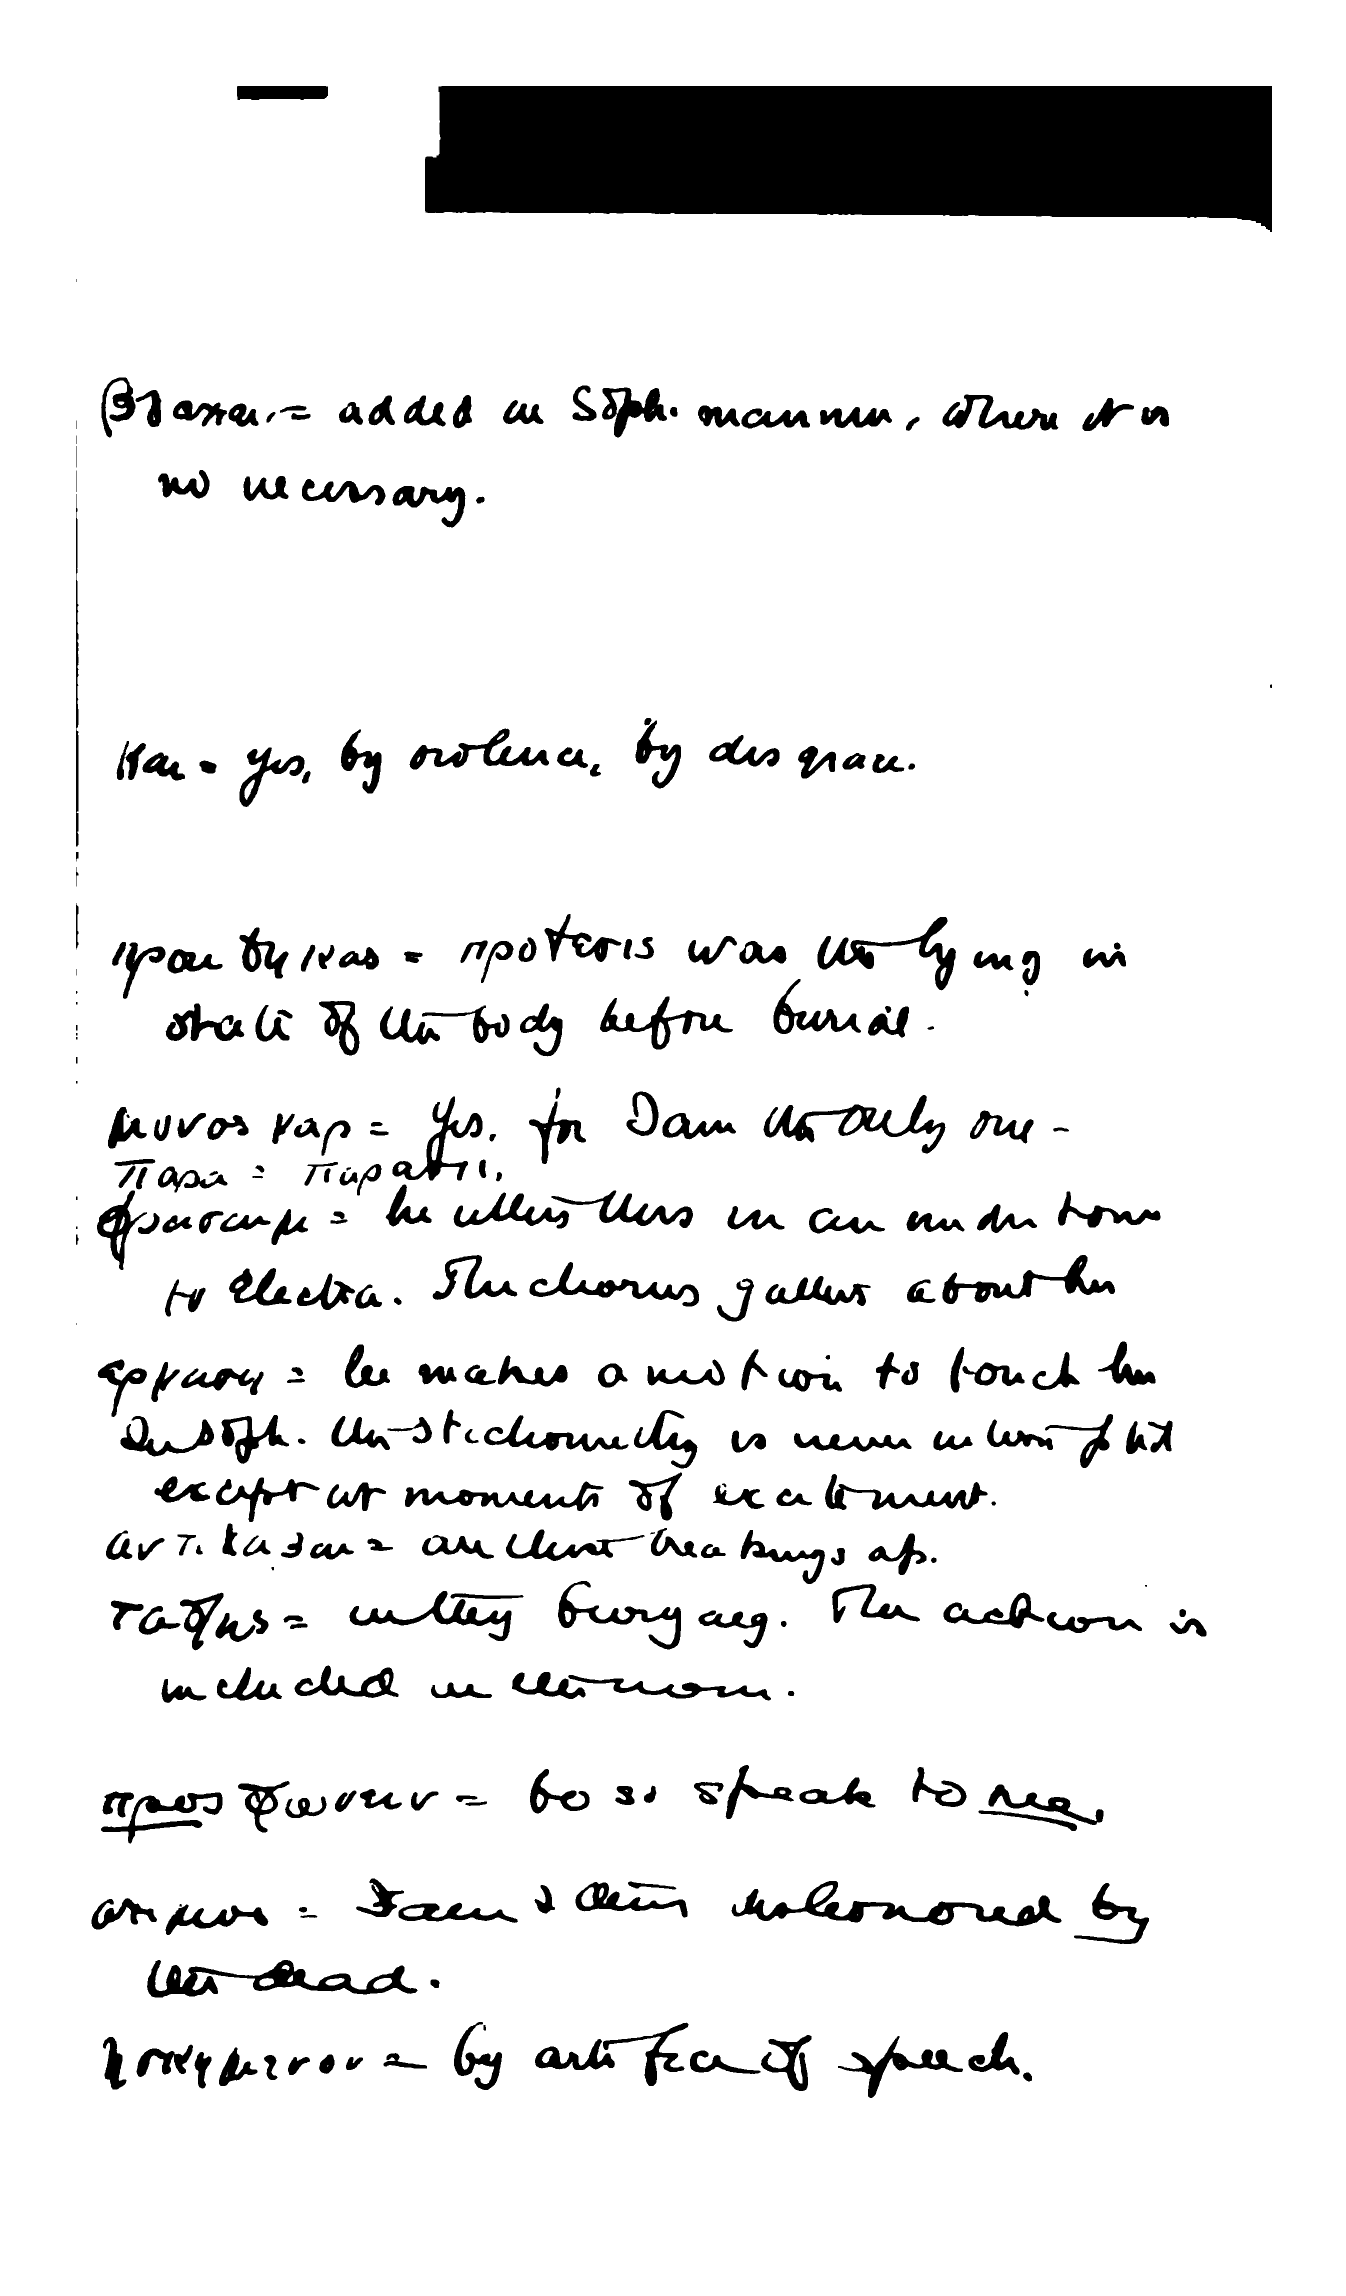 βλασται = added in Soph. manner, where it is
no necessary.
και = yes, by violence, by disgrace.
προυθηκας = προτεσις was the lying in
state of the body before burial.
μονος γαρ = yes. for I am the only one -
παρα = παρεστι.
φρασαιμ = he utters this in an under tone
to Electra. The chorus gather about her
αρκυση = he makes a motion to touch her
In Soph. the stichomuthy is never interrupted
except at moments of excitement.
αντι = are these breakings of.
ταφης = in they burying. The action is
included in the noun.
προσφωνειν = to so speak to me.
ατιμος = I am thus dishonored by
the dead.
ησκημενον = by artifice of speech.